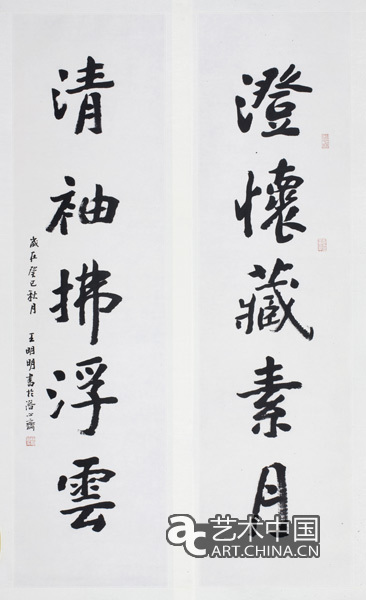 澄懷藏素月
清袖拂浮雲
歲在癸巳秋月
王明明書於潛心齋
ac 艺术中国
ART.CHINA.CN